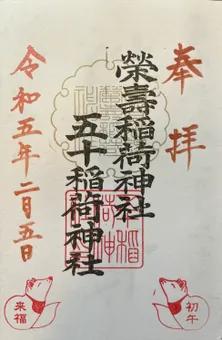 奉拝
榮壽稲荷神社
五十稲荷神社
令和五年二月五日
初午
来福